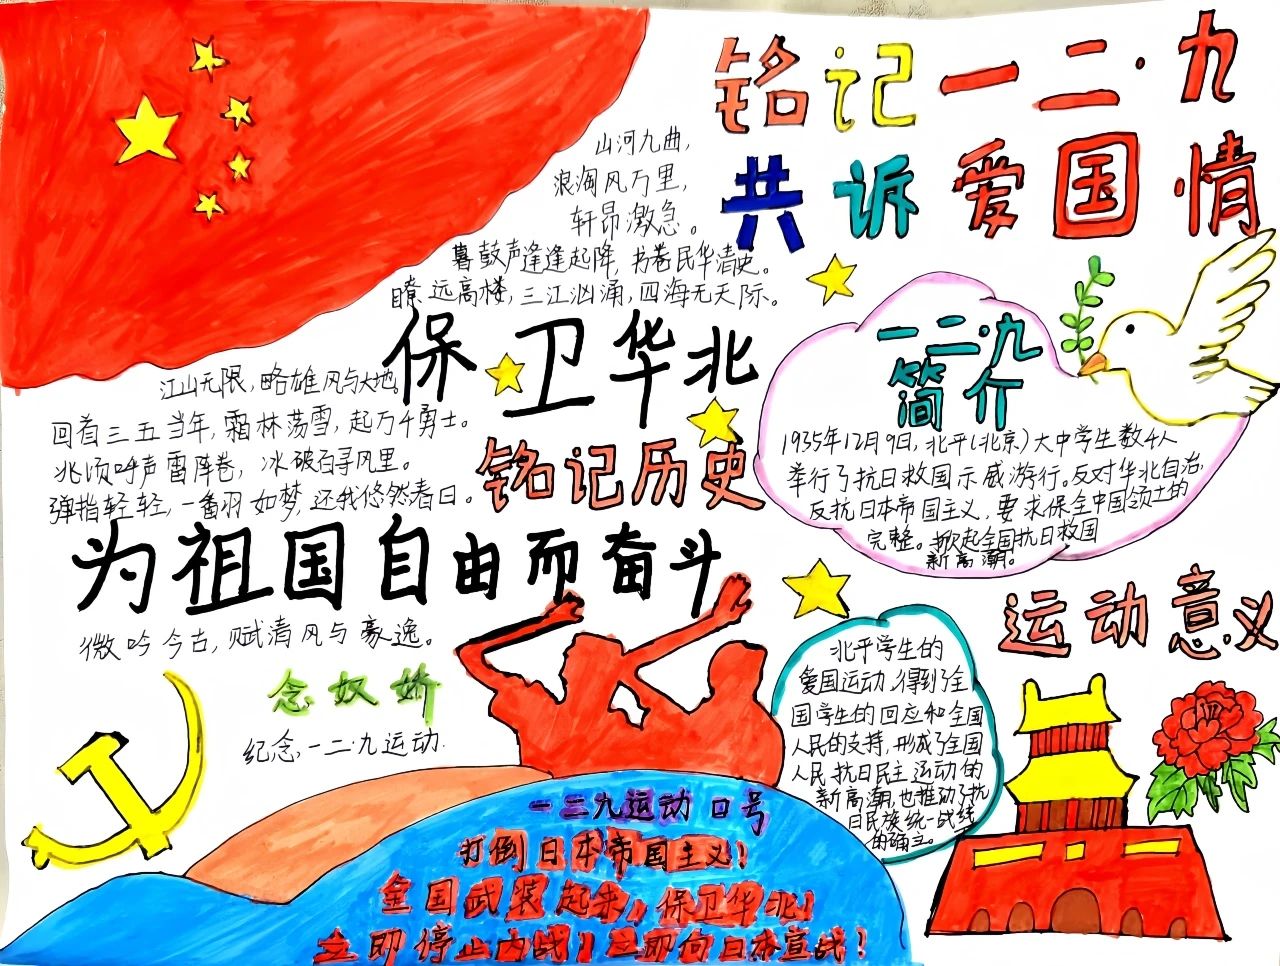 铭记一二·九
共诉爱国情
山河九曲，
浪淘风万里，
轩昂激急。
暮鼓声逢逢起降，书卷民华清史。
瞭远高楼，三江汹涌，四海无天际。
保卫华北
江山无限，略雄风与大地。
回看三五当年，霜林荡雪，起万千勇士。
兆顷呼声雷阵卷，冰破百寻风里。
弹指轻轻，一番羽如梦，还我悠然春日。
铭记历史
为祖国自由而奋斗
微吟今古，赋清风与豪逸。
念奴娇
纪念，一二·九运动
一二·九
简介
1935年12月9日，北平（北京）大中学生数千人
举行了抗日救国示威游行。反对华北自治，
反抗日本帝国主义，要求保全中国领土的
完整。掀起全国抗日救国
新高潮。
运动意义
北平学生的
爱国运动，得到了全
国学生的回应和全国
人民的支持，形成了全国
人民抗日民主运动的
新高潮，也推动了抗
日民族统一战线
的确立。
一二九运动口号
打倒日本帝国主义！
全国武装起来，保卫华北！
立即停止内战！立即向日本宣战！